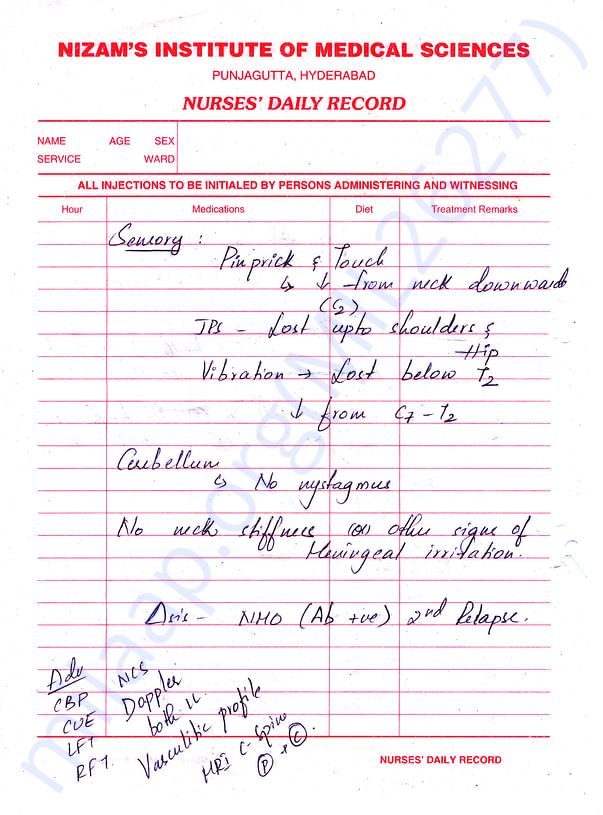 NIZAM'S INSTITUTE OF MEDICAL SCIENCES
PUNJAGUTTA, HYDERABAD
NURSES' DAILY RECORD
NAME AGE SEX
SERVICE WARD
ALL INJECTIONS TO BE INITIALED BY PERSONS ADMINISTERING AND WITNESSING
Hour Medications Diet Treatment Remarks
Sensory :
Pinprick & Touch
↳ ↓ from neck downwards
(C2)
JPS - Lost upto shoulders &
Hip
Vibration → Lost below T2
↓ from C7 - T2
Cerebellum
↳ No nystagmus
No neck stiffness (or) other signs of
Meningeal irritation.
Δsis - NMO (Ab +ve) 2nd Relapse.
Adv
CBP
CUE
LFT
RFT.
NCS
Doppler
both
Vasculitic profile
MRI C-Spine
P + C
NURSES' DAILY RECORD
milaap.org(MIL26277)